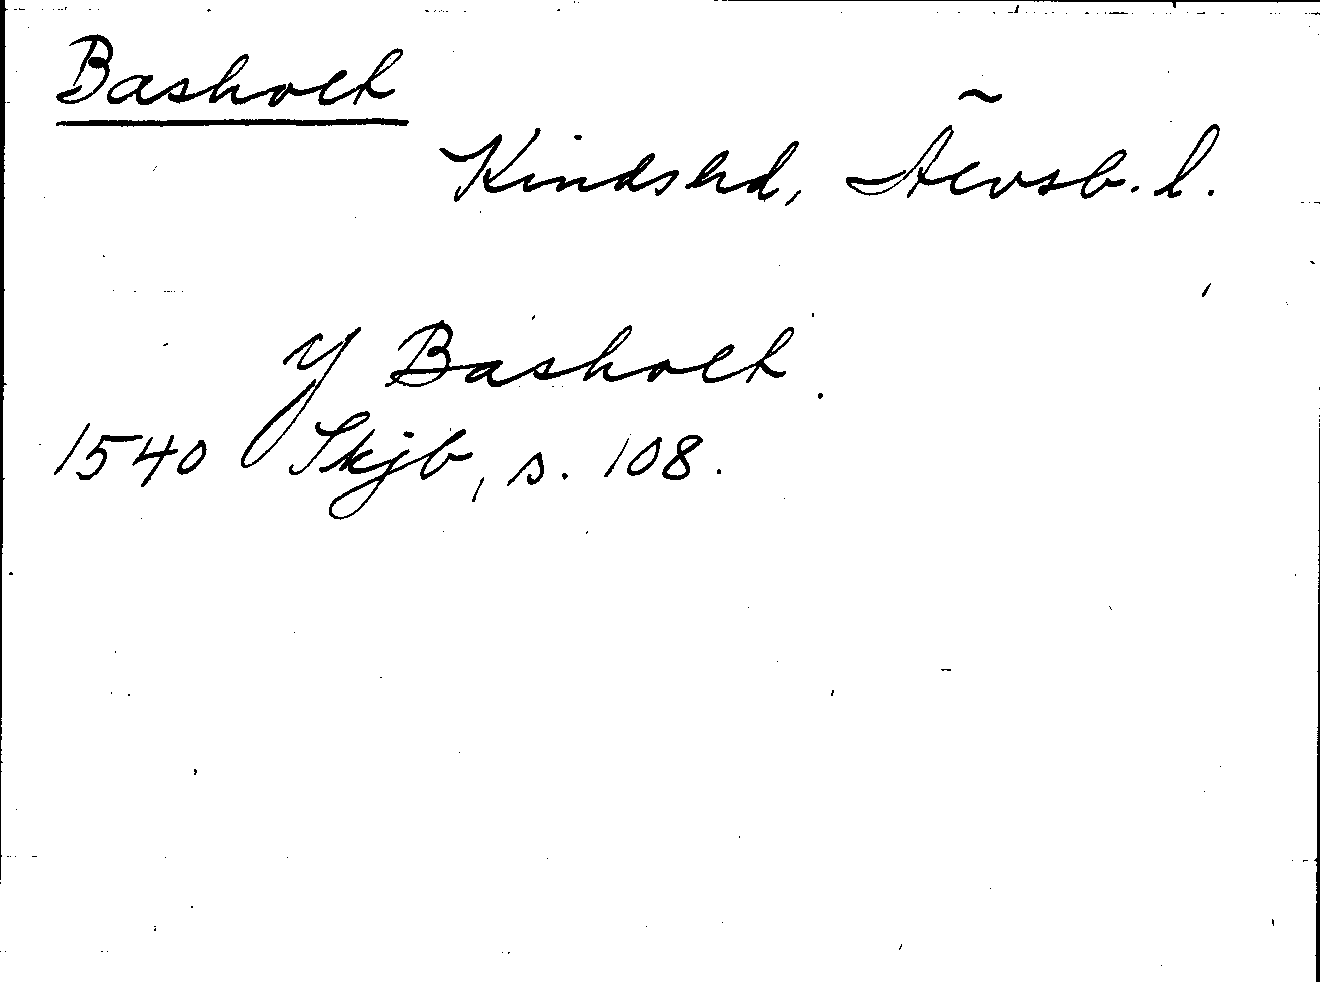 Basholt
Kindshd, Älvsb. l.
y Basholt.
1540 Skjb, s. 108.